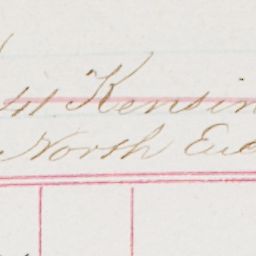 41 Kensin
North End